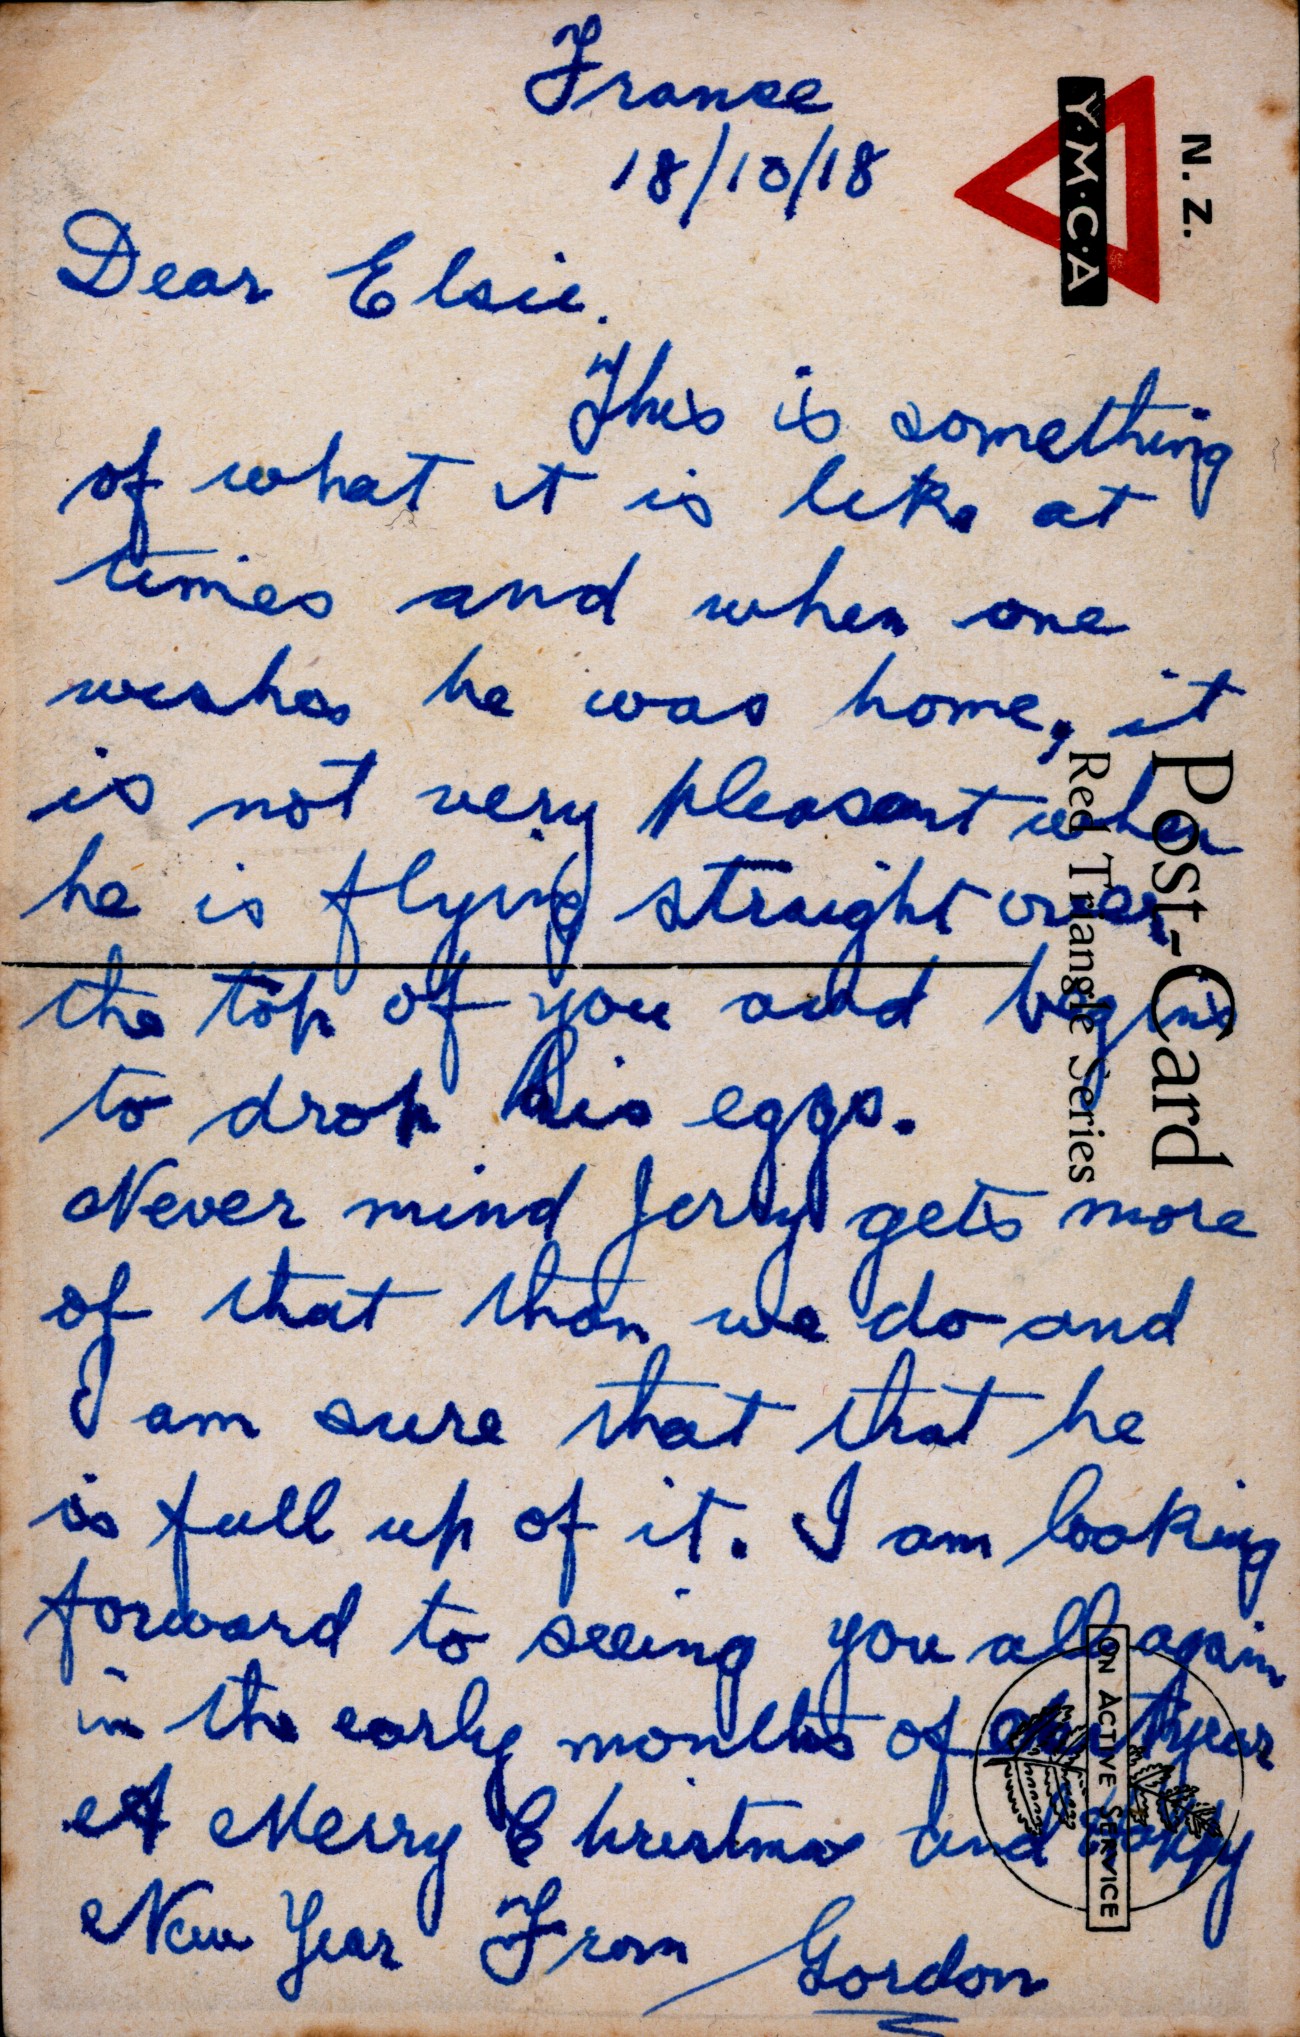 France
18/10/18
Dear Elsie.
This is something
of what it is like at
times and when one
wishes he was home, it
is not very pleasant when
he is flying straight over
the top of you and begins
to drop his eggs.
Never mind Jerry gets more
of that than we do and
I am sure that that he
is full up of it. I am looking
forward to seeing you all again
in the early months of year
A Merry Christmas and Happy
New Year From Gordon
N. Z.
Y·M·C·A
Post-Card
Red Triangle Series
ON ACTIVE SERVICE